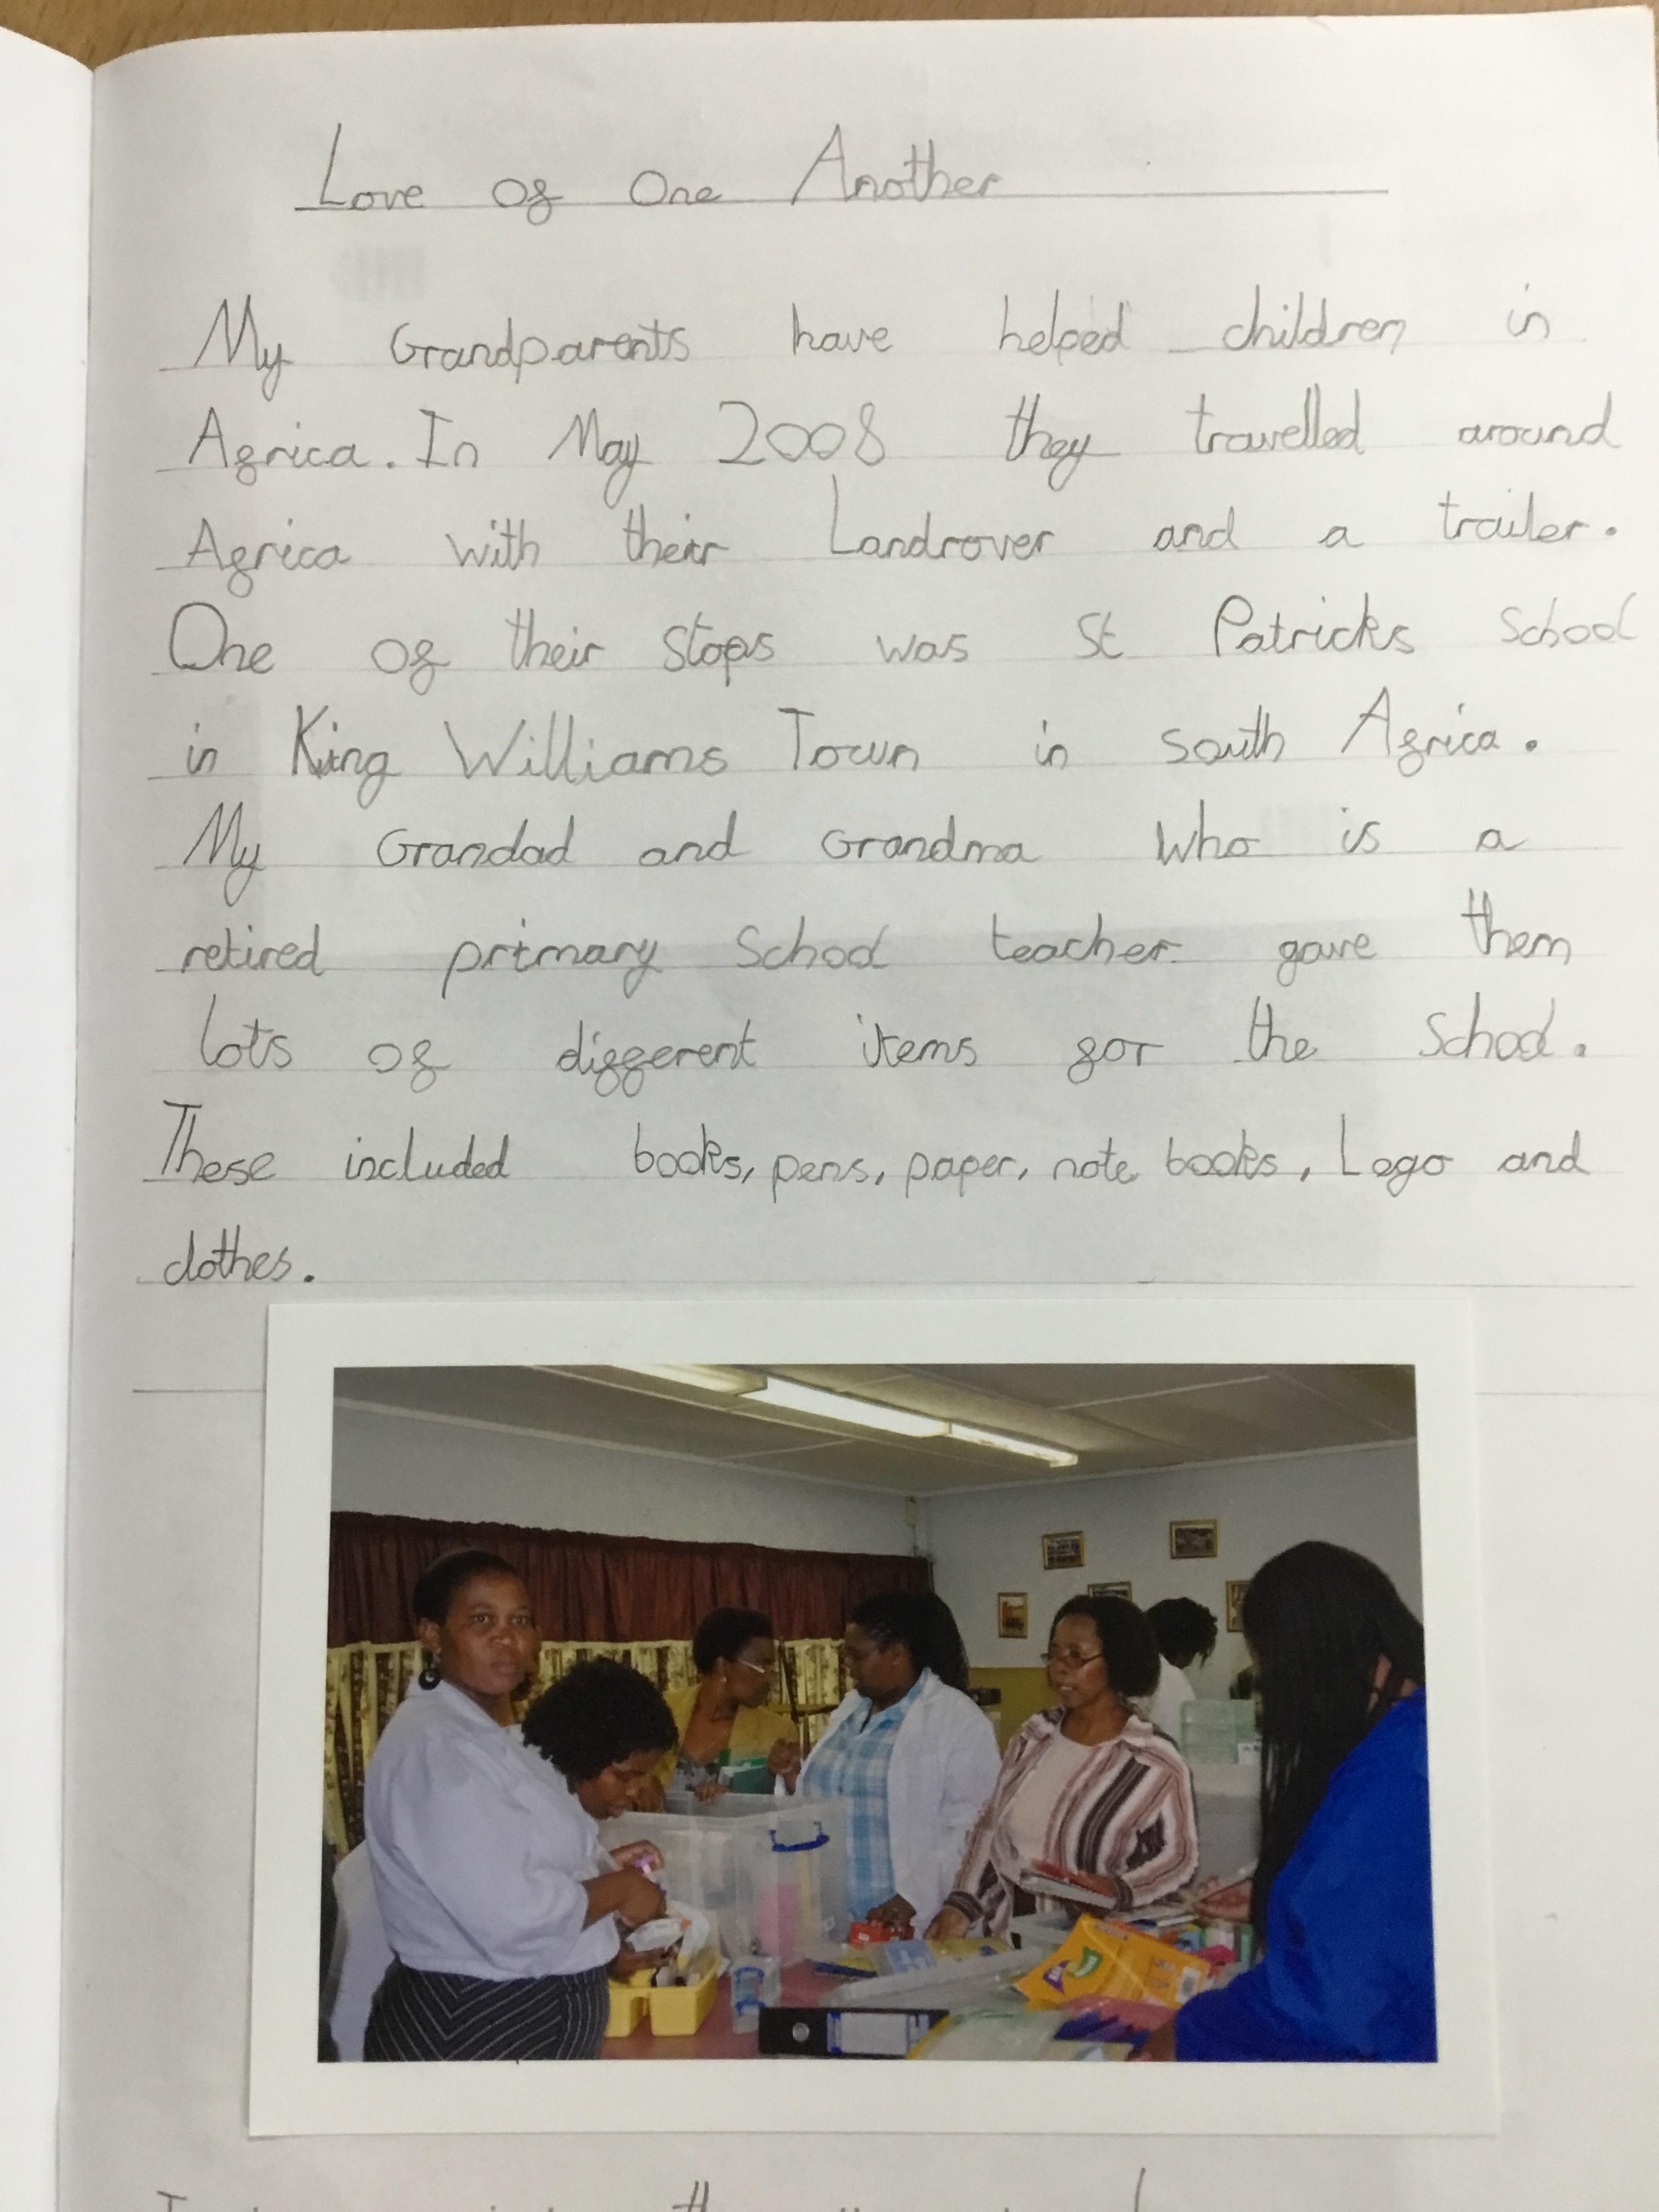 Love Of One Another
My Grandparents have helped children in
Africa. In May 2008 they travelled around
Africa with their Landrover and a trailer.
One of their stops was St Patricks School
in King Williams Town in south Africa.
My Grandad and Grandma who is a
retired primary School teacher gave them
lots of different items for the School.
These included books, pens, paper, note books, Lego and
clothes.